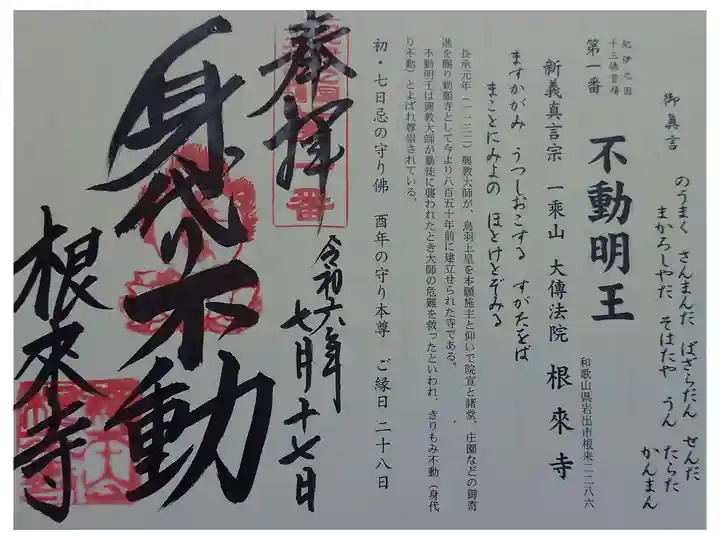 御真言
のうまく さんまんだ ばざらだん せんだ
まかろしやだ そはたや うん たらた
かんまん
紀伊之国
十三佛霊場
第一番
不動明王
和歌山県岩出市根来二二八六
新義真言宗 一乘山 大傳法院 根來寺
ますかがみ うつしおこする すがたをば
まことにみよの ほとけとぞみる
長承元年(一一三二)興教大師が、鳥羽上皇を本願施主と仰いで院宣と諸堂、庄園などの御寄
進を賜り勅願寺として今より八百五十年前に建立せられた寺である。
不動明王は興教大師が暴徒に襲われたとき大師の危難を救ったといわれ、きりもみ不動(身代
り不動)とよばれ尊崇されている。
初・七日忌の守り佛 酉年の守り本尊 ご縁日 二十八日
奉拝
令和六年
七月十七日
身代り不動
根來寺